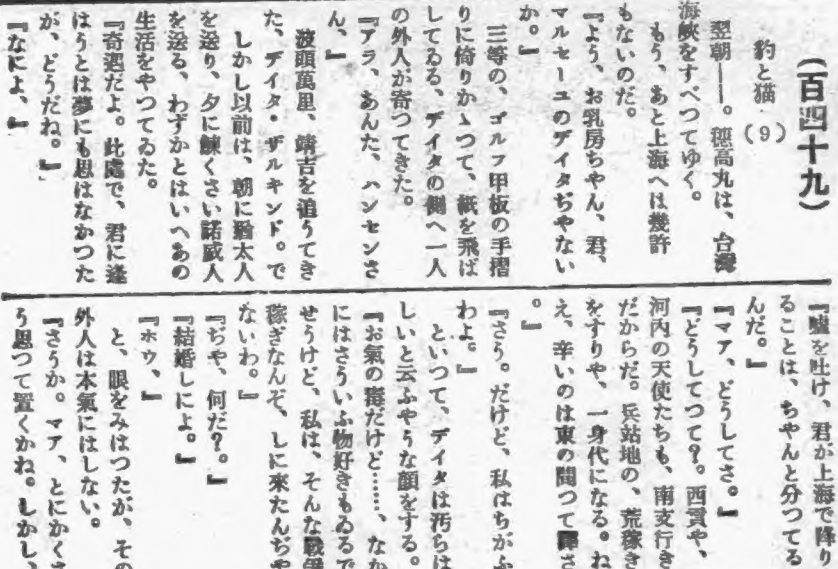 (百四十九)
豹と猫
(9)
翌朝――。穂高丸は、台灣
海峽をすべつてゆく。
もう、あと上海へは幾許
もないのだ。
『よう、お乳房ちやん、君、
マルセーユのデイタぢやない
か。』
三等の、ゴルフ甲板の手摺
りに倚りかゝつて、紙を飛ば
してゐる、デイタの側へ一人
の外人が寄つてきた。
『アラ、あんた、ハンセンさ
ん、』
波頭萬里、靖吉を追うてき
た、デイタ・ザルキンド。で
しかし以前は、朝に猶太人
を送り、夕に鰊くさい諾威人
を送る、わずかとはいへあの
生活をやつてゐた。
『奇遇だよ。此處で、君に逢
はうとは夢にも思はなかつた
が、どうだね。』
『なによ、』
『嘘を吐け、君が上海で降り
ることは、ちやんと分つてる
んだ。』
『マア、どうしてさ。』
『どうしてつて?。西貢や、
河内の天使たちも、南支行き
だからだ。兵站地の、荒稼き
をすりや、一身代になる。ね
え、辛いのは東の關つて
。』
『さう。だけど、私はちがふ
わよ。』
といつて、デイタは汚らは
しいと云ふやうな顔をする。
『お氣の毒だけど……、なか
にはさういふ物好きもゐるで
せうけど、私は、そんな戰
稼ぎなんぞ、しに來たんぢや
ないわ。』
『ぢや、何だ?。』
『結婚しによ。』
『ホウ、』
と、眼をみはつたが、その
外人は本氣にはしない。
『さうか。マア、とにかくさ
う思つて置くかね。しかし、